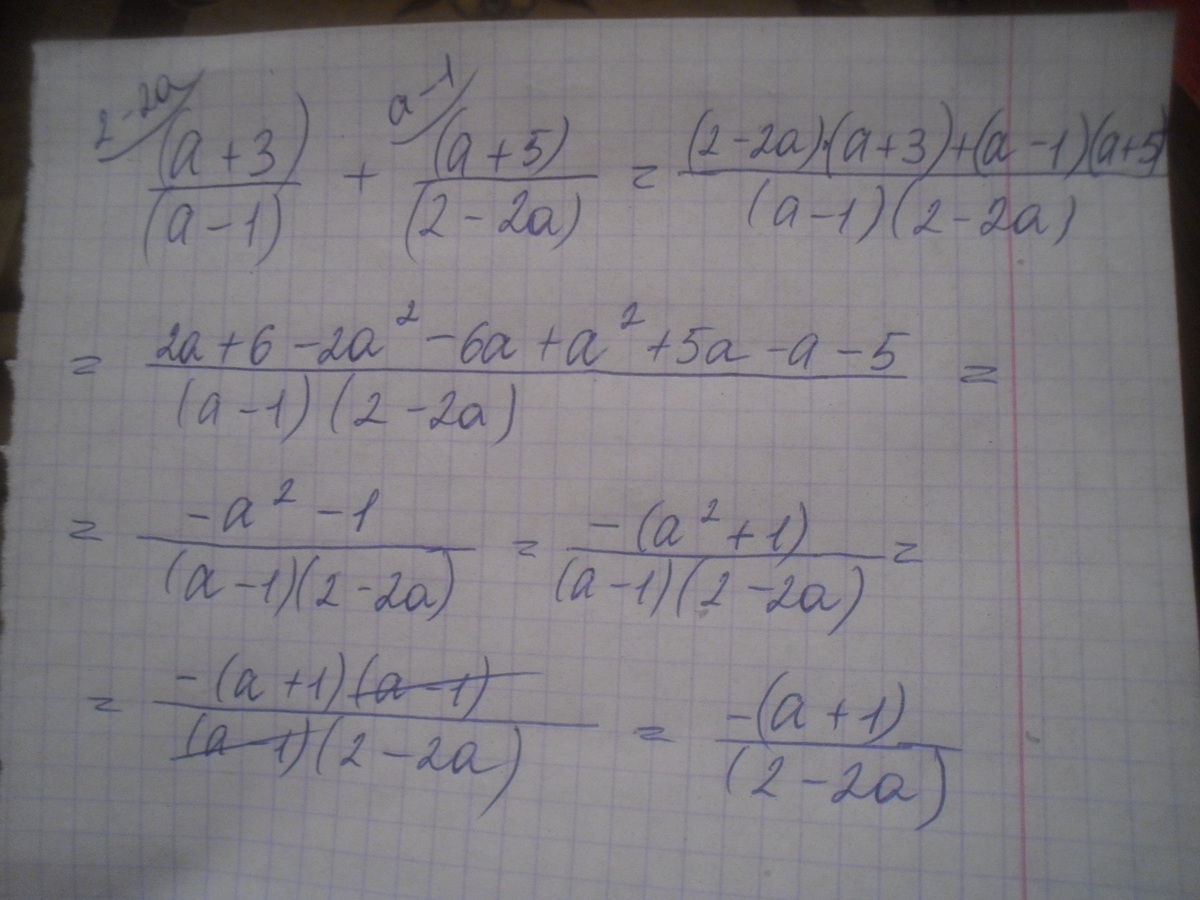 2-2a/ (a+3)/(a-1) + a-1/ (a+5)/(2-2a) = ((2-2a)·(a+3)+(a-1)(a+5))/((a-1)(2-2a))
= (2a+6-2a²-6a+a²+5a-a-5)/((a-1)(2-2a)) =
= (-a²-1)/((a-1)(2-2a)) = (-(a²+1))/((a-1)(2-2a)) =
= (-(a+1)(a-1))/((a-1)(2-2a)) = (-(a+1))/((2-2a))